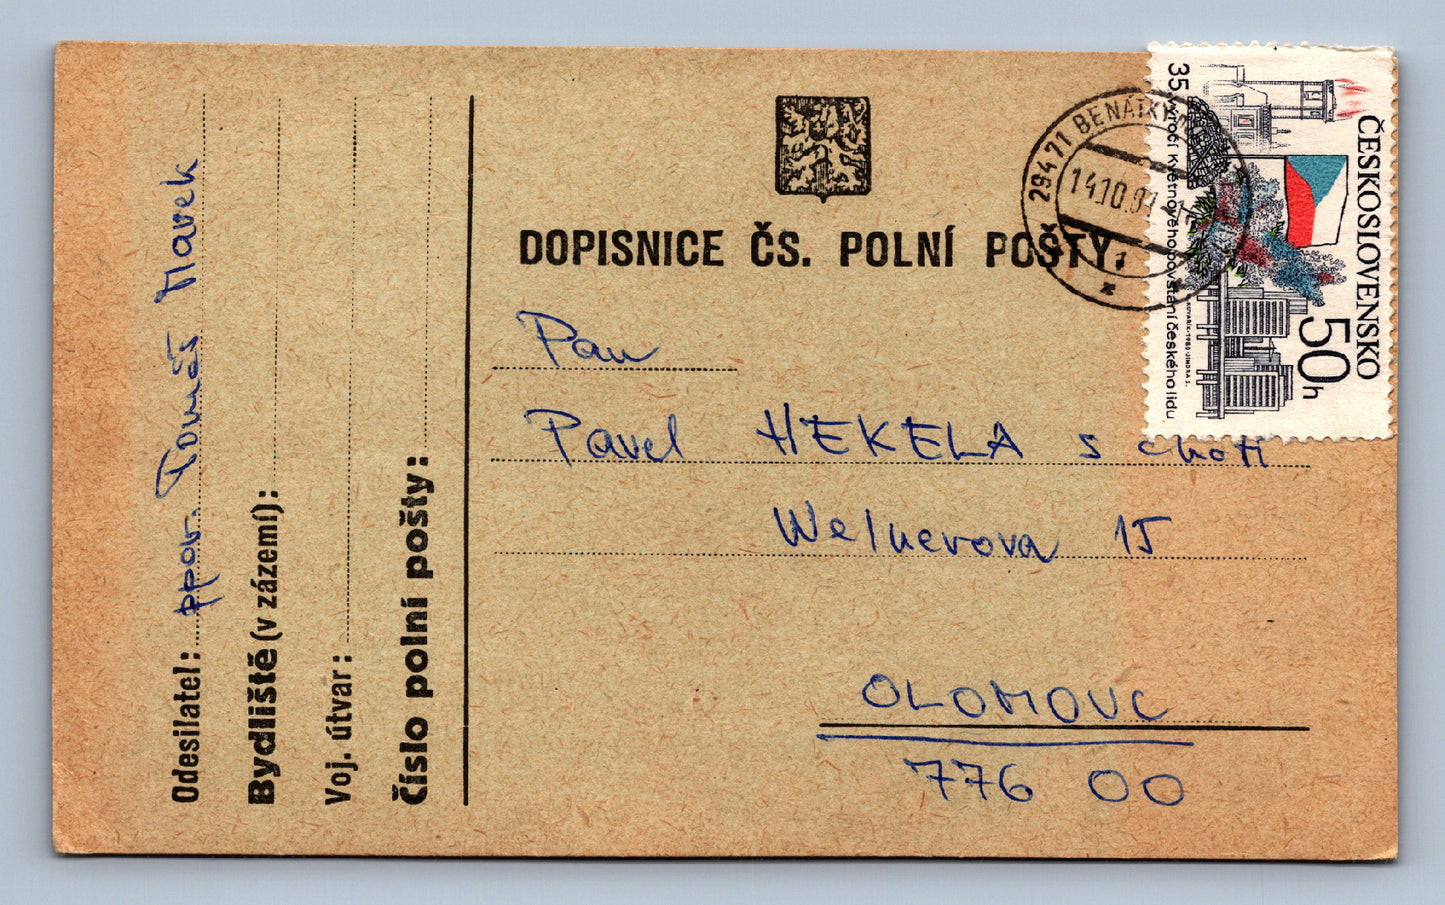 Odesílatel: ppor. Tomáš Marek
Bydliště (v zázemí):
Voj. útvar:
Číslo polní pošty:
DOPISNICE ČS. POLNÍ POŠTY.
Pan
Pavel HEKELA s chotí
Welnerova 15
OLOMOUC
776 00
294 71 BENÁTKY
14.10.
1
ČESKOSLOVENSKO
50h
35. výročí Květnového povstání českého lidu
KOVÁŘÍK-1980-JINDRA S.